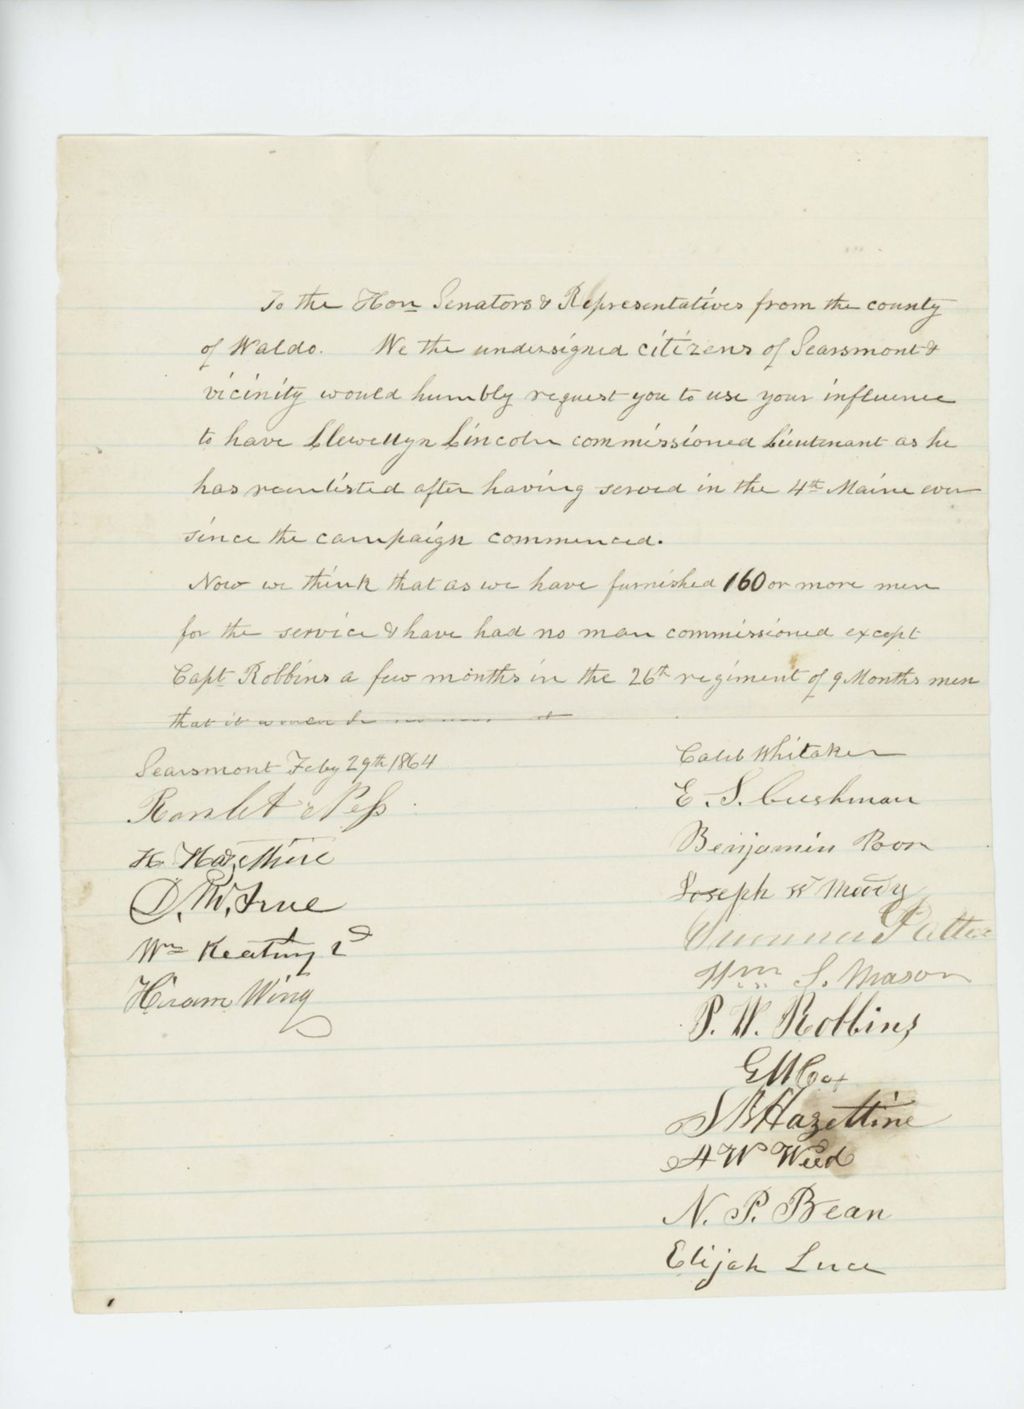 To the Hon Senators & Representatives from the county
of Waldo. We the undersigned citizens of Searsmont &
vicinity would humbly request you to use your influence
to have Llewellyn Lincoln commissioned Lieutenant as he
has reenlisted after having served in the 4th Maine ever
since the campaign commenced.
Now we think that as we have furnished 160 or more men
for the service & have had no man commissioned except
Capt Robbins a few months in the 26th regiment of 9 Months men
that it
Searsmont Feby 29th 1864
Ness
H. Hazeltine
True
Wm Keating 2d
Hiram Wing
Caleb Whitaker
E. S. Cushman
Benjamin Poor
Joseph W Moody
Wm S. Mason
P. W. Robbins
G M Cox
S B Hazeltine
A W Weed
N. P. Bean
Elijah Luce